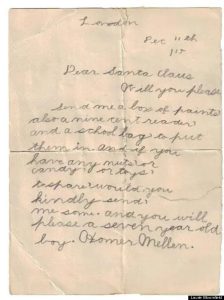 London
Dec 11th
1915
Dear Santa Claus
Will you please
send me a box of paints
also a nine cent reader
and a school bag to put
them in. and if you
have any nuts or
candy or toys
to spare would you
kindly send
me some. and you will
please a seven year old
boy. Homer Mellen.